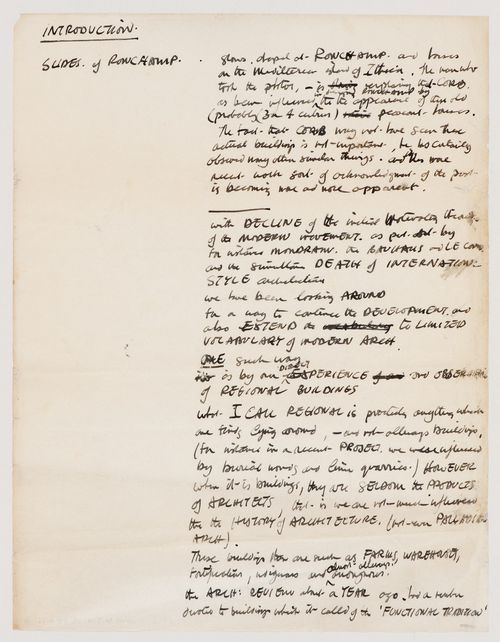 INTRODUCTION.
SLIDES. of RONCHAMP.
Shows, chapel at RONCHAMP. and houses
on the Mediterranean island of Ithica. The man who
took the photos, - is explaining that CORB
as been influenced by the appearance of these old
(probably 3 or 4 centuries) peasant houses.
The fact that CORB may not have seen these
actual buildings is not important, he has certainly
observed many other similar things. and this more
recent work sort of acknowledgment of the past
is becoming more and more apparent.
with DECLINE of the initial theories
of the MODERN MOVEMENT. as put out by
for instance MONDRIAN. the BAUHAUS and LE COR
and the simultaneous DEATH of INTERNATIONAL
STYLE architecture
we have been looking AROUND
for a way to continue the DEVELOPMENT. and
also EXTEND the vocabulary to LIMITED
VOCABULARY of MODERN ARCH.
ONE such way
is by our DIRECT EXPERIENCE and OBSERVATION
of REGIONAL BUILDINGS
what I CALL REGIONAL is precisely anything which
one finds lying around, - and not always buildings,
(for instance in a recent PROJECT. we were influenced
by burial mounds and lime quarries.) HOWEVER
when it is buildings, they are SELDOM the PRODUCTS
of ARCHITECTS, that is we are not much influenced
the HISTORY of ARCHITECTURE. (not even PALLADIAN
ARCH)
These buildings then are such as FARMS, WAREHOUSES,
Fortifications, and almost always anonymous.
the ARCH: REVIEW about a YEAR ago. had a number
devoted to buildings which it called of the 'FUNCTIONAL TRADITION'